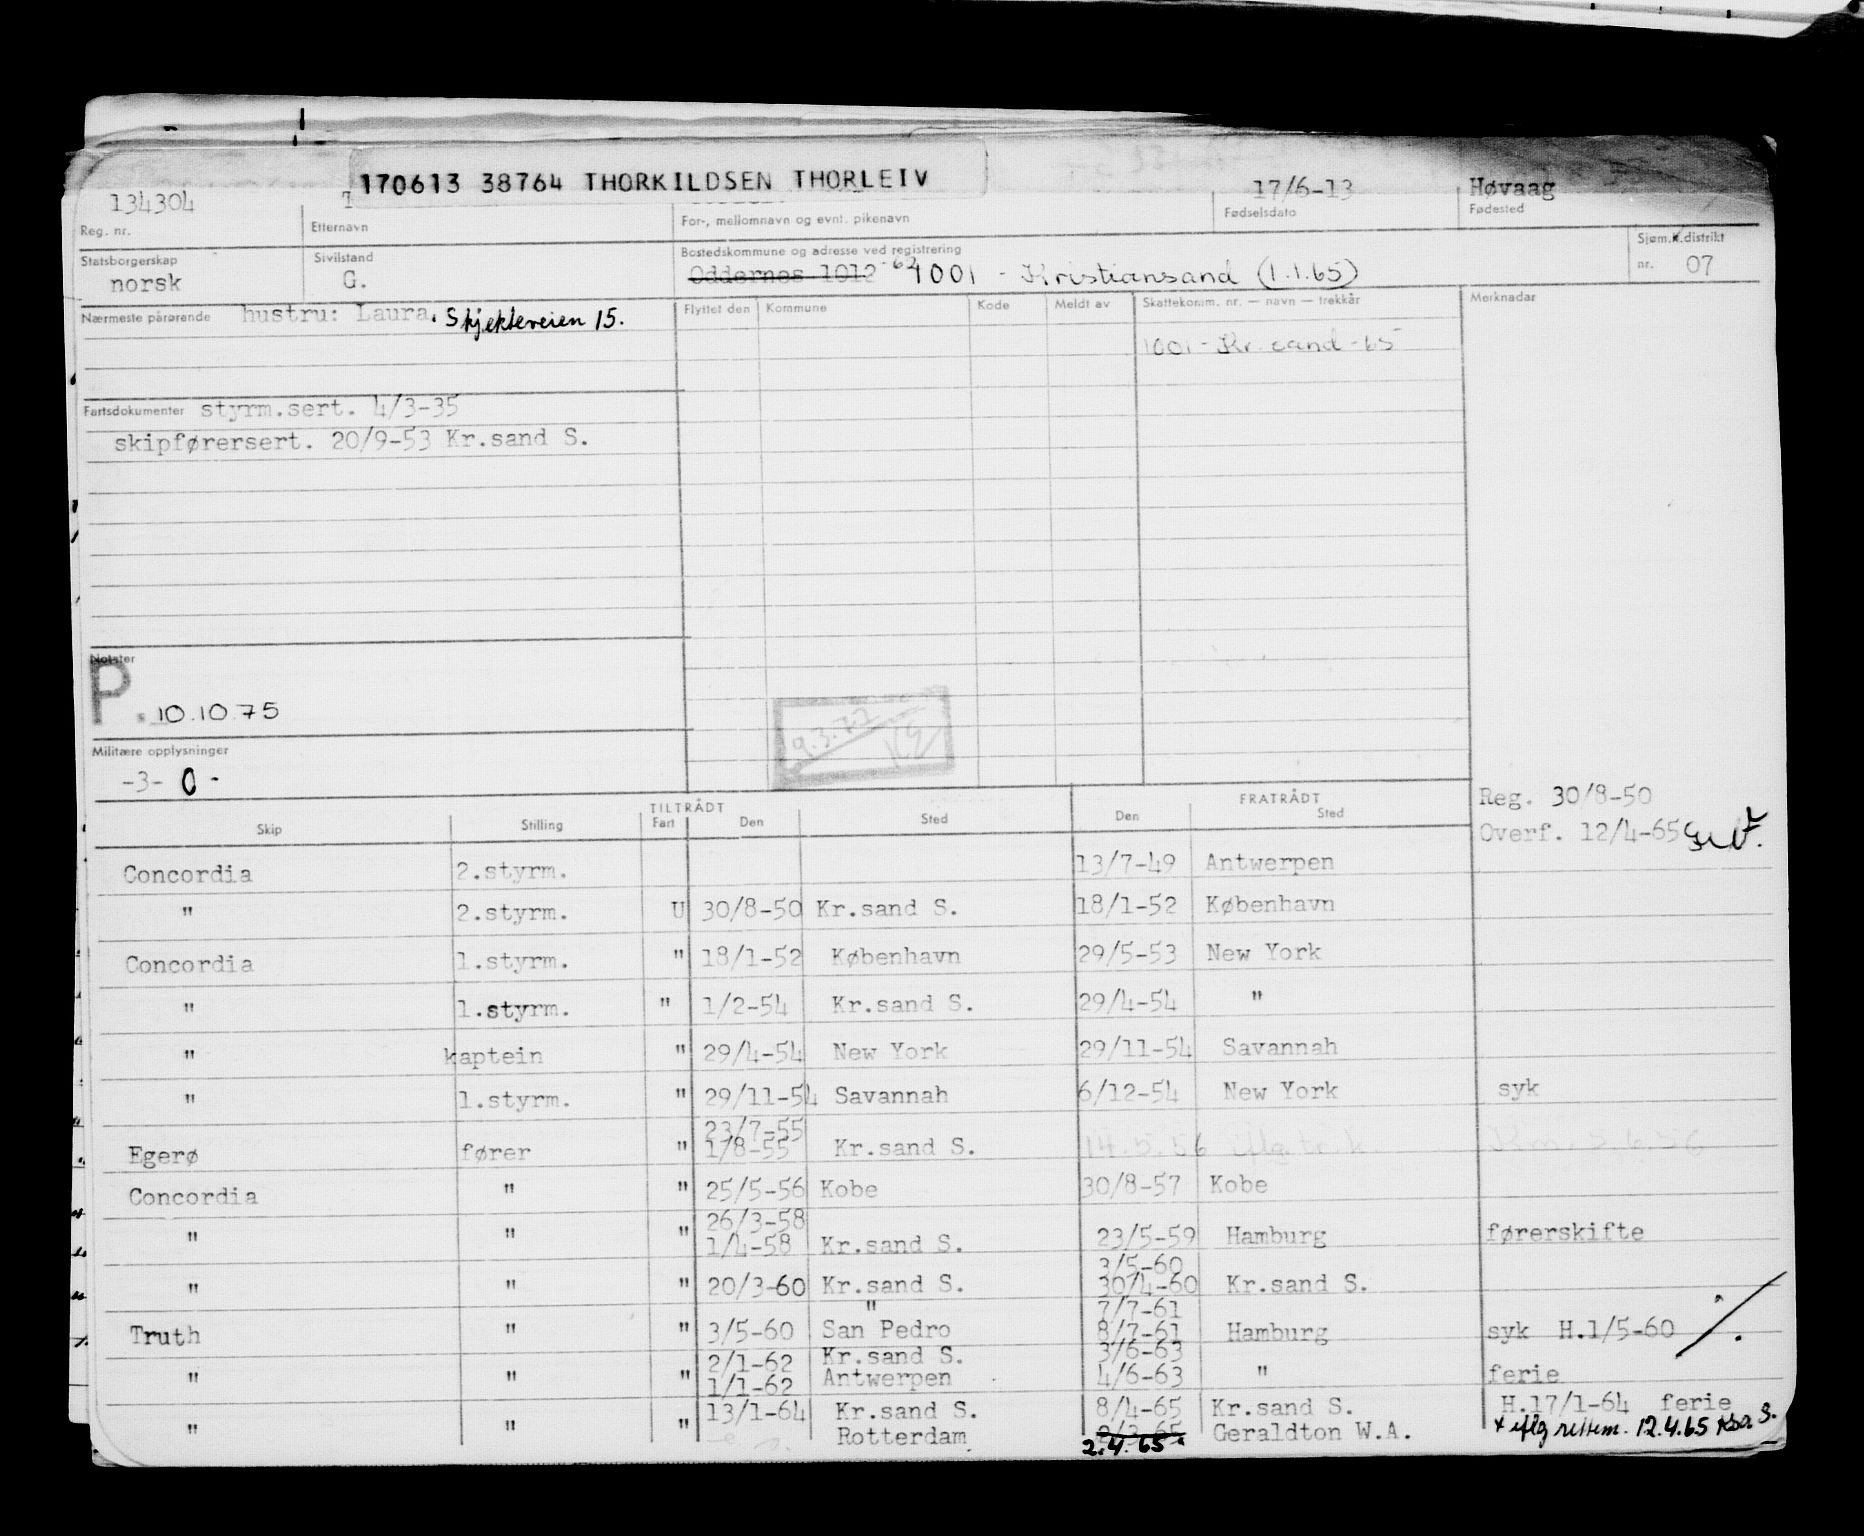 170613 38764 THORKILDSEN THORLEIV
134304 T 17/6-13 Høvaag
Reg. nr. Etternavn For-, mellomnavn og evnt. pikenavn Fødselsdato Fødested
Statsborgerskap Sivilstand Bostedskommune og adresse ved registrering Sjøm.k.distrikt
norsk G. Oddernes 1012 1001 - Kristiansand (1.1.65) nr. 07
Nærmeste pårørende hustru: Laura. Skjekteveien 15.
Flyttet den Kommune Kode Meldt av Skattekomm. nr. — navn — trekkår Merknadar
1001 - Kr. sand - 65
Fartsdokumenter styrm.sert. 4/3-35
skipførersert. 20/9-53 Kr.sand S.
Notater
P. 10.10.75
9.3.77
Militære opplysninger
-3- 0 -
Reg. 30/8-50
Overf. 12/4-65
TILTRÅDT FRATRÅDT
Skip Stilling Fart Den Sted Den Sted
Concordia 2.styrm. 13/7-49 Antwerpen
" 2.styrm. U 30/8-50 Kr.sand S. 18/1-52 København
Concordia 1.styrm. " 18/1-52 København 29/5-53 New York
" 1.styrm. " 1/2-54 Kr.sand S. 29/4-54 "
" kaptein " 29/4-54 New York 29/11-54 Savannah
" 1.styrm. " 29/11-54 Savannah 6/12-54 New York syk
23/7-55
Egerø fører " 1/8-55 Kr.sand S. 14.5.56 5.6.56
Concordia " " 25/5-56 Kobe 30/8-57 Kobe
26/3-58
" " " 1/4-58 Kr.sand S. 23/5-59 Hamburg førerskifte
3/5-60
" " " 20/3-60 Kr.sand S. 30/4-60 Kr.sand S.
" 7/7-61
Truth " " 3/5-60 San Pedro 8/7-61 Hamburg syk H.1/5-60
2/1-62 Kr.sand S. 3/6-63
" " " 1/1-62 Antwerpen 4/6-63 " ferie
13/1-64 Kr.sand S. 8/4-65 Kr.sand S. H.17/1-64 ferie
" " " Rotterdam 2/3-65 Geraldton W.A. x iflg rettem. 12.4.65 Kr.a. S.
2.4.65.